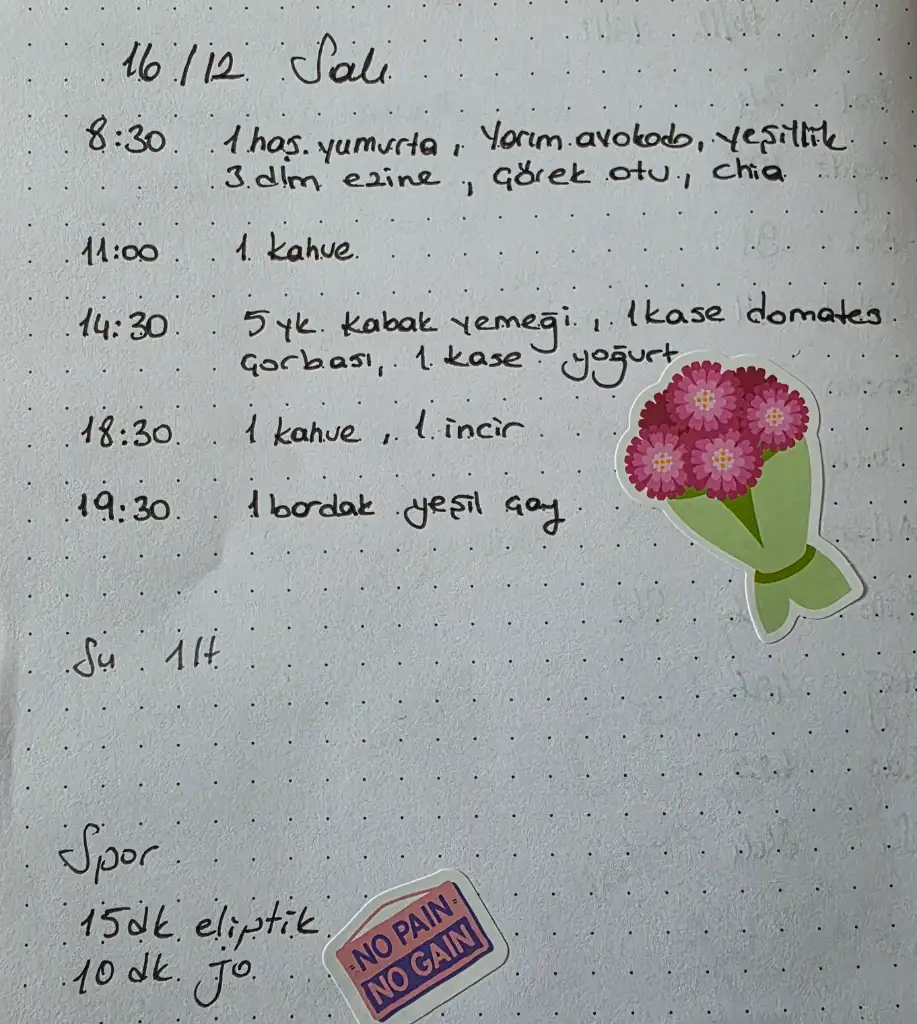 16/12 Salı
8:30 1 haş. yumurta, Yarım avokado, yeşillik
3 dlm ezine, çörek otu, chia
11:00 1 kahve
14:30 5 yk. kabak yemeği, 1 kase domates
çorbası, 1 kase yoğurt
18:30 1 kahve, 1 incir
19:30 1 bardak yeşil çay
Su 1 lt
Spor
15 dk eliptik
10 dk. JO
NO PAIN
NO GAIN